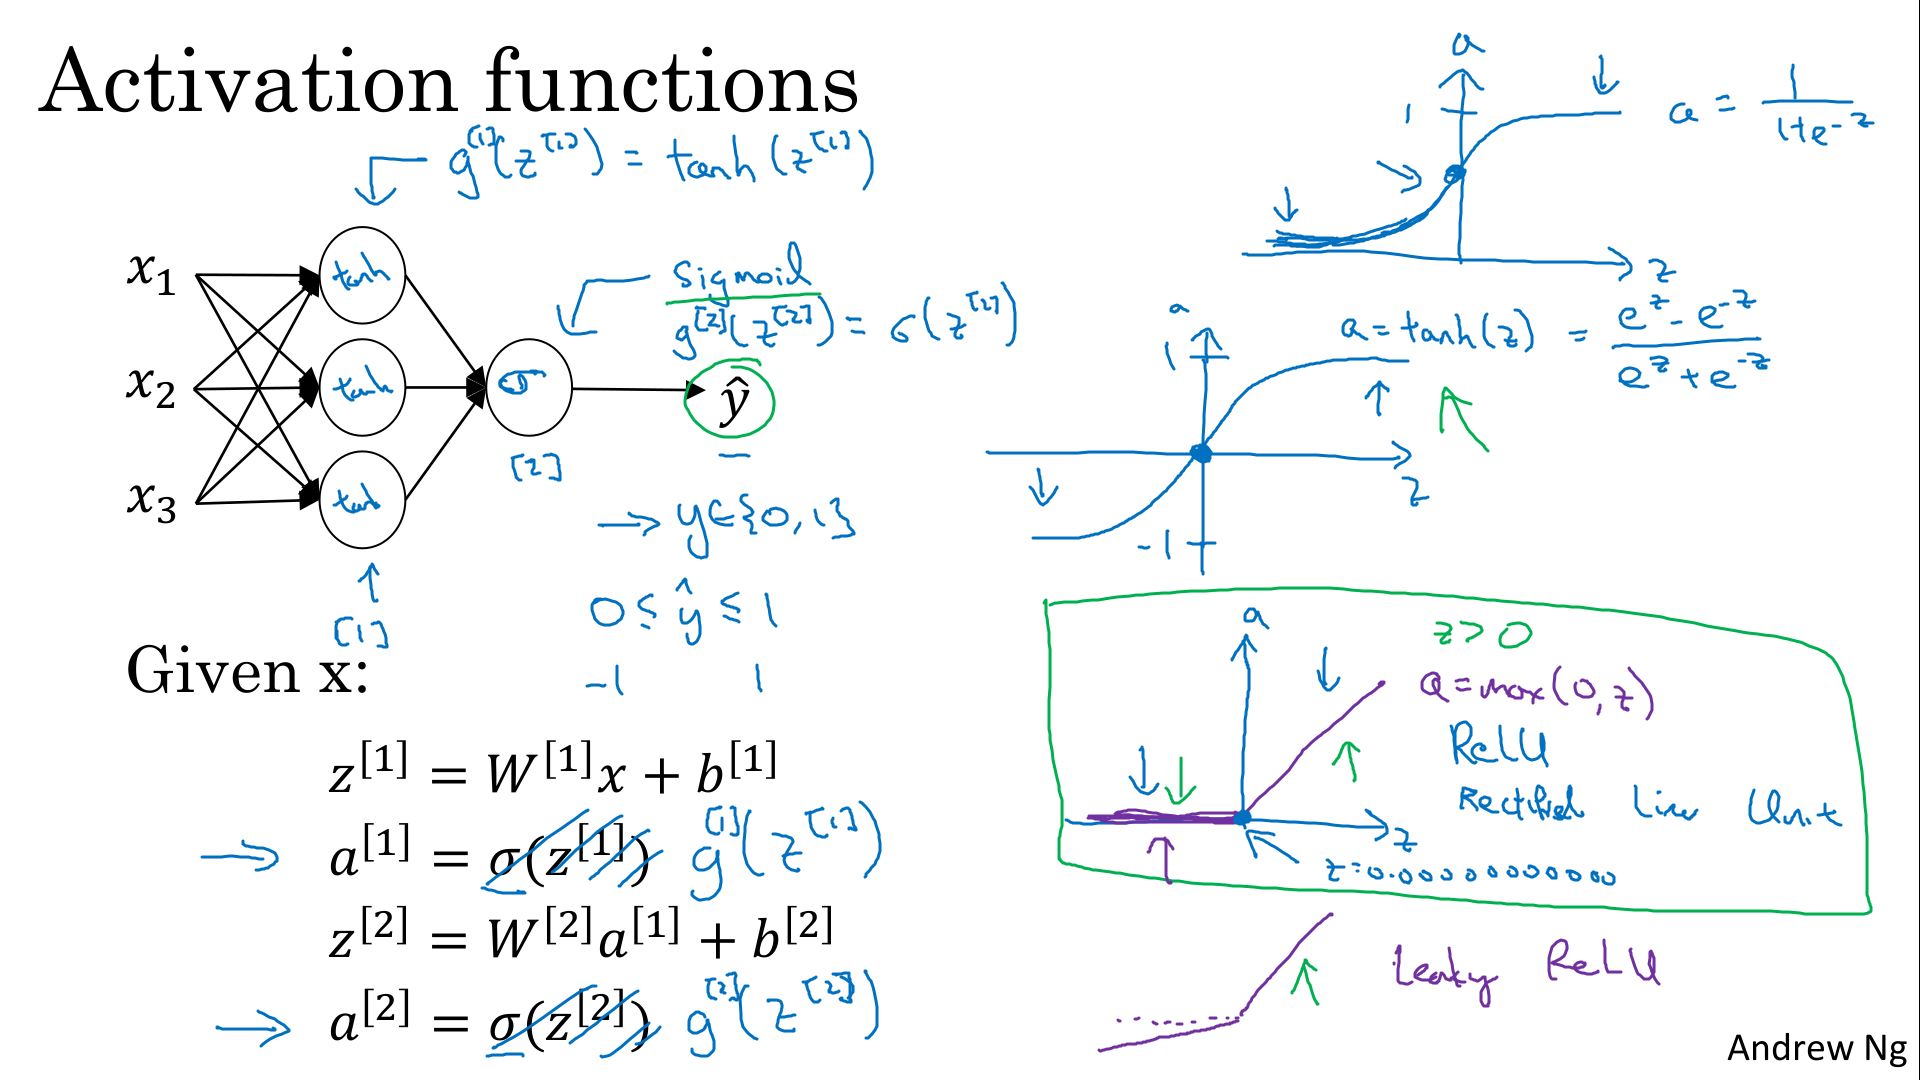 Activation functions
g^[1](z^[1]) = tanh(z^[1])
x₁
x₂
x₃
tanh
tanh
tanh
σ
sigmoid
g^[2](z^[2]) = σ(z^[2])
ŷ
[1]
[2]
→ y∈{0,1}
0 ≤ ŷ ≤ 1
-1 1
Given x:
z^[1] = W^[1]x + b^[1]
→ a^[1] = σ(z^[1]) g^[1](z^[1])
z^[2] = W^[2]a^[1] + b^[2]
→ a^[2] = σ(z^[2]) g^[2](z^[2])
a
1
z
a = 1/(1+e^-z)
a
1
-1
z
a = tanh(z) = (e^z - e^-z)/(e^z + e^-z)
a
z
z > 0
a = max(0,z)
ReLU
Rectified Linear Unit
z=0.000000000000
Leaky ReLU
Andrew Ng